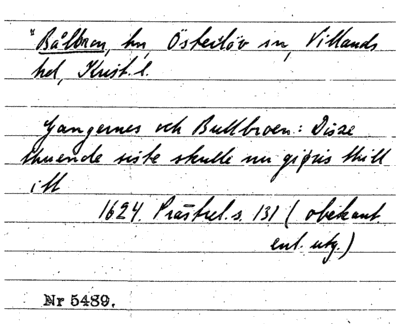 "Bålbron, hn, Österlöv sn, Villands
hd, Krist. l.
Gangernes och Bullbroen: Disze
thuende siste skulle nu giøris thill
itt
1624. Prästrel. s. 131 (obekant
enl. utg.)
Nr 5489.